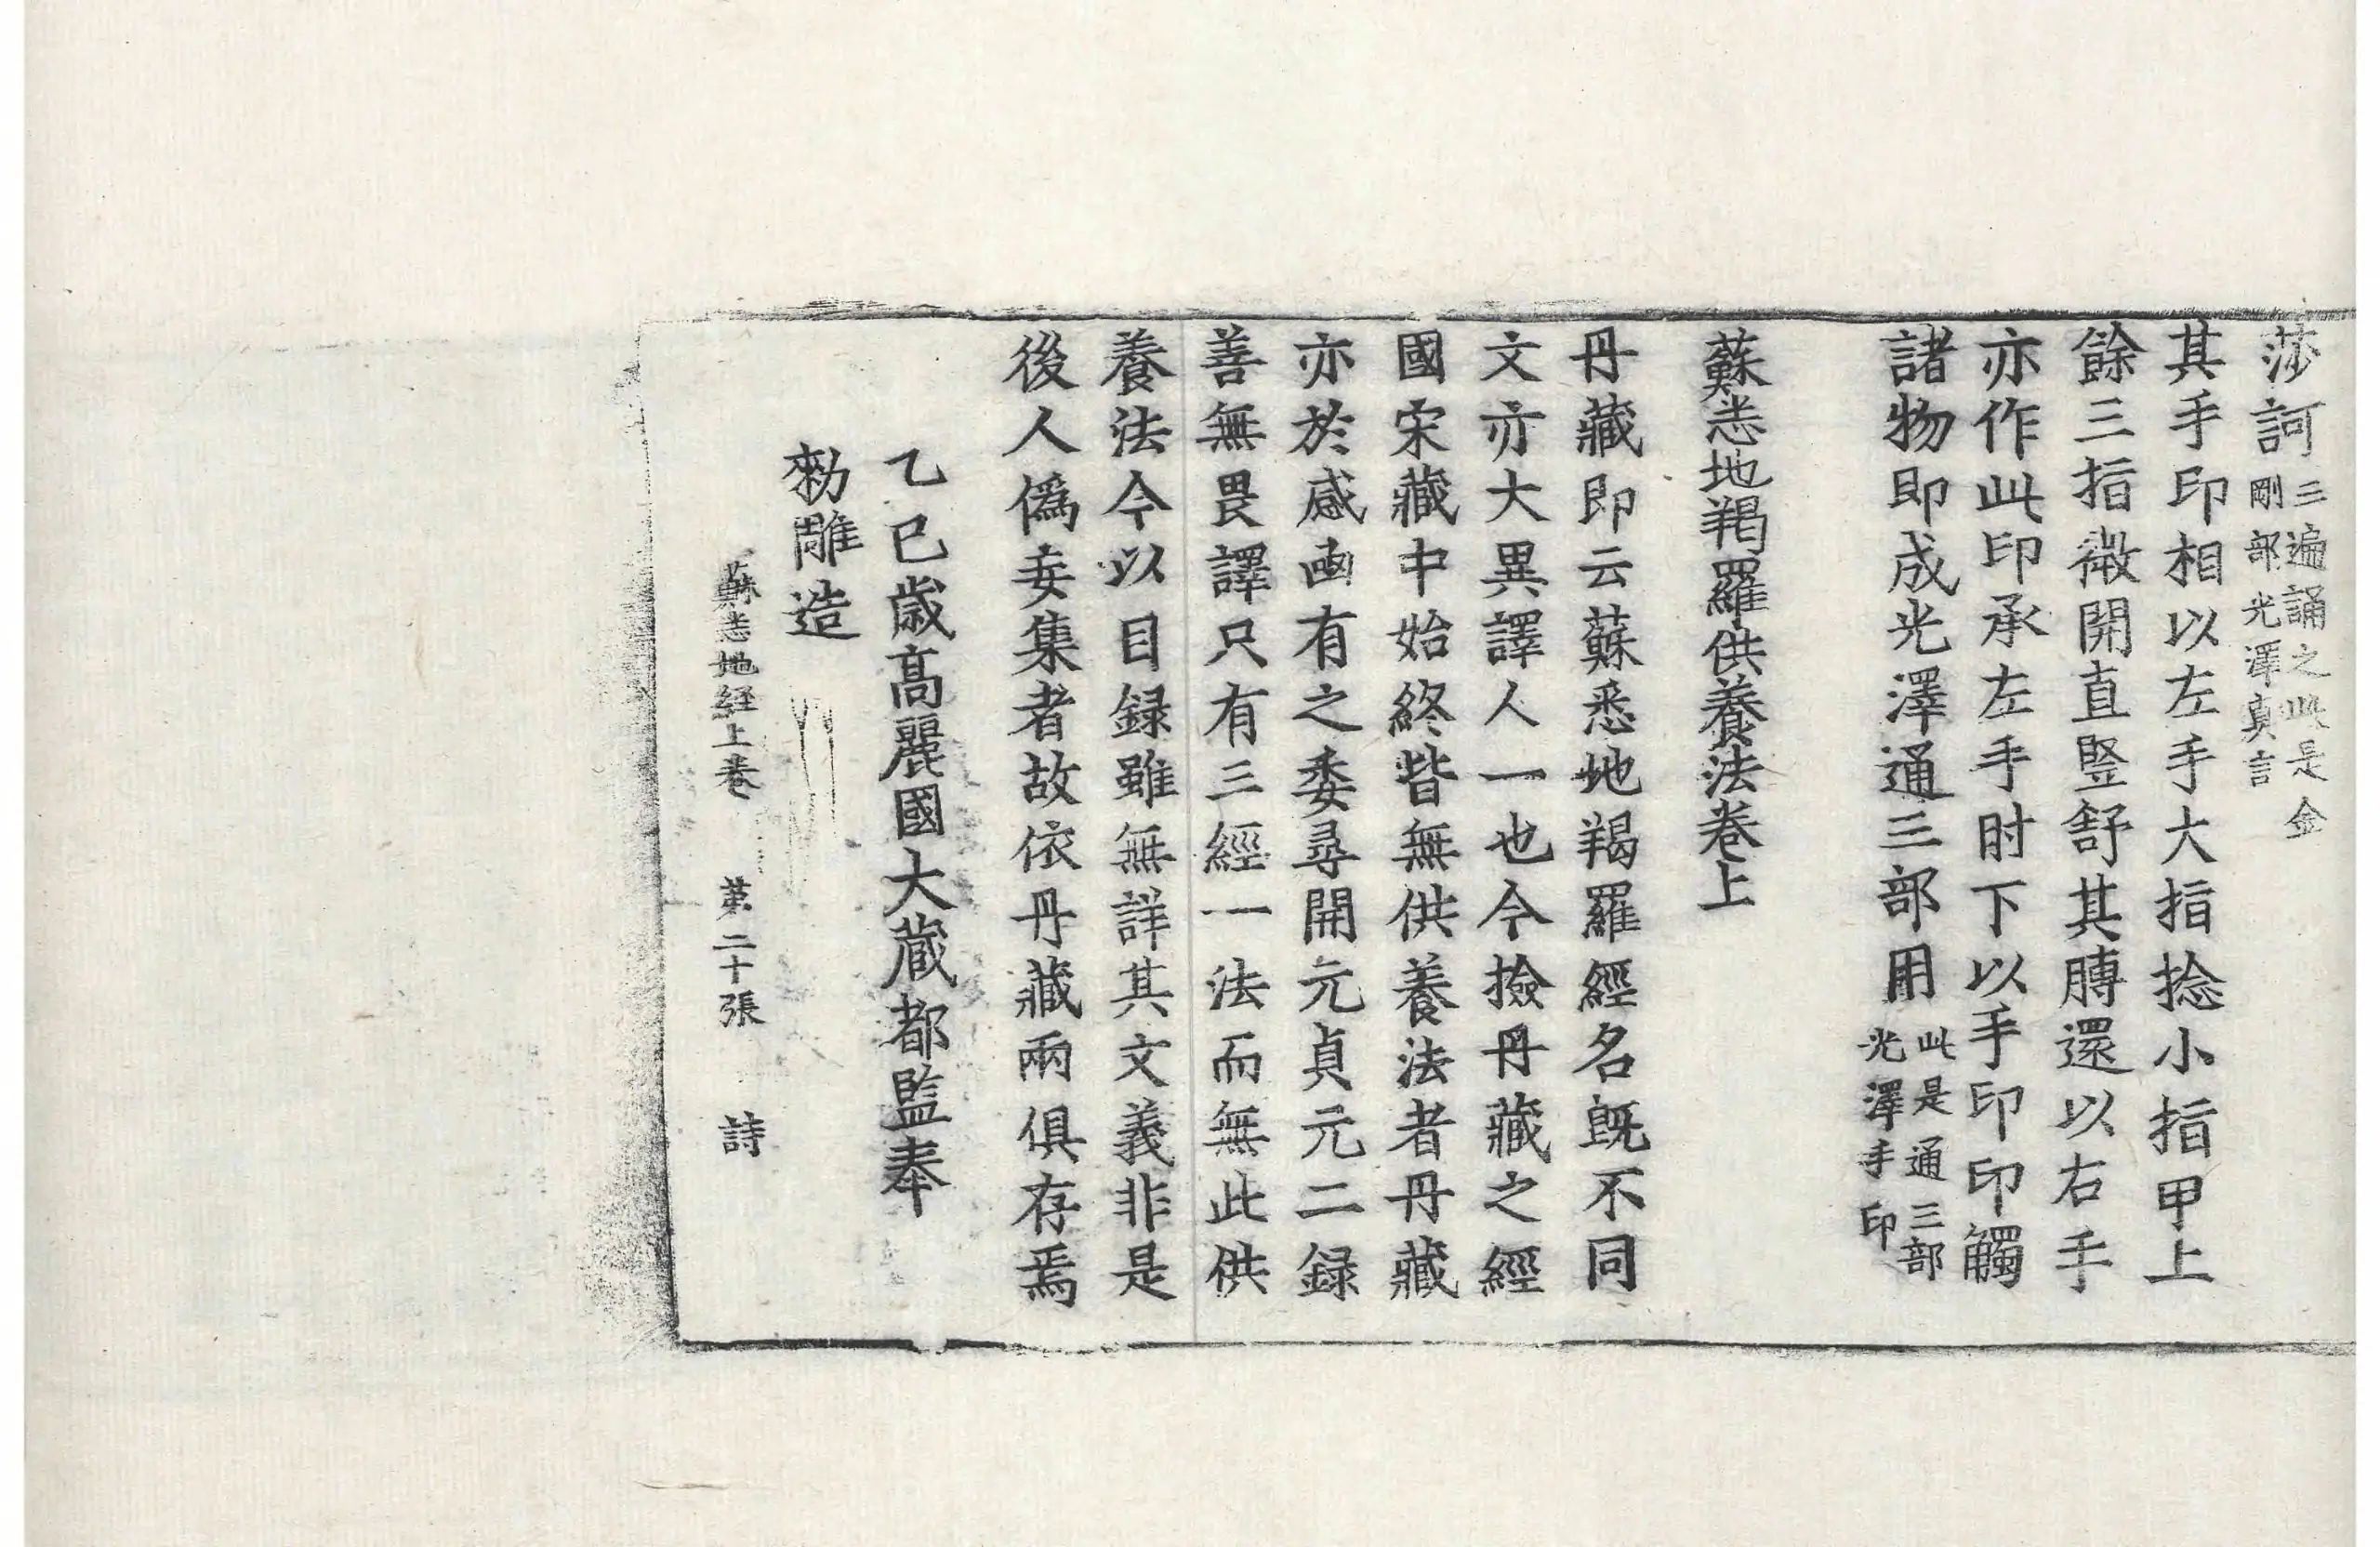 莎訶三遍誦之此是金剛部光澤真言
其手印相以左手大指捻小指甲上
餘三指微開直竪舒其膊還以右手
亦作此印承左手肘下以手印印觸
諸物即成光澤通三部用此是通三部光澤手印
蘇悉地羯羅供養法卷上
丹藏即云蘇悉地羯羅經名旣不同
文亦大異譯人一也今撿丹藏之經
國宋藏中始終皆無供養法者丹藏
亦於感凾有之委尋開元貞元二録
善無畏譯只有三經一法而無此供
養法今以目録雖無詳其文義非是
後人僞妄集者故依丹藏兩俱存焉
乙巳歲高麗國大藏都監奉
勑雕造
蘇悉地経上卷 第二十張 詩